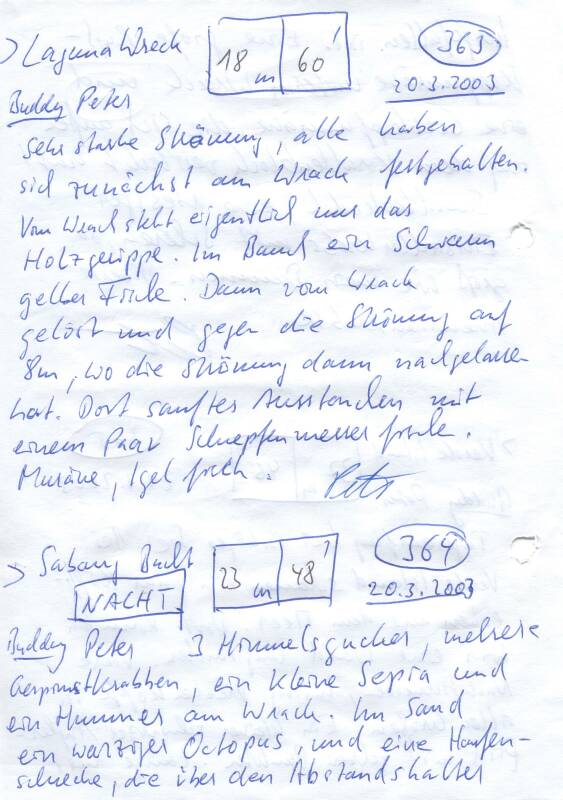 > Laguna Wreck 18 m 60' 363
20.3.2003
Buddy Peter
Sehr starke Strömung, alle haben
sich zunächst am Wrack festgehalten.
Vom Wrack steht eigentlich nur das
Holzgerippe. Im Bauch ein Schwarm
gelber Fische. Dann vom Wrack
gelöst und gegen die Strömung auf
8m, wo die Strömung dann nachgelassen
hat. Dort sanftes Austauchen mit
einem Paar Schnepfenmesserfische.
Muräne, Igelfisch.
Peter
> Sabang Bucht 23 m 48' 364
NACHT 20.3.2003
Buddy Peter 3 Himmelsgucker, mehrere
Gespinstkrabben, ein kleine Sepia und
ein Hummer am Wrack. Im Sand
ein warziger Octopus, und eine Haufen-
schnecke, die über den Abstandshalter